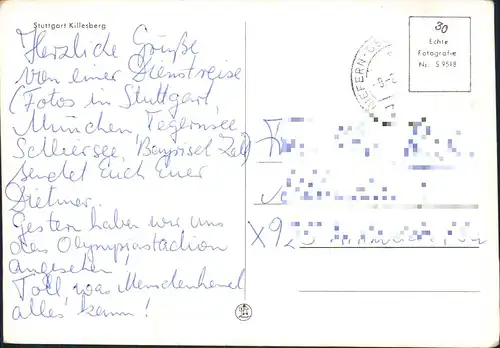 Stuttgart Killesberg
Herzliche Grüße
von einer Dienstreise
(Fotos in Stuttgart,
München, Tegernsee,
Schliersee, Bayrisch Zell)
sendet Euch Euer
Dietmar.
Gestern haben wir uns
das Olympiastadion
angesehen!
Toll, was Menschenhand
alles kann!
30
Echte
Fotografie
Nr. S 9518
NIEFERN-
X9